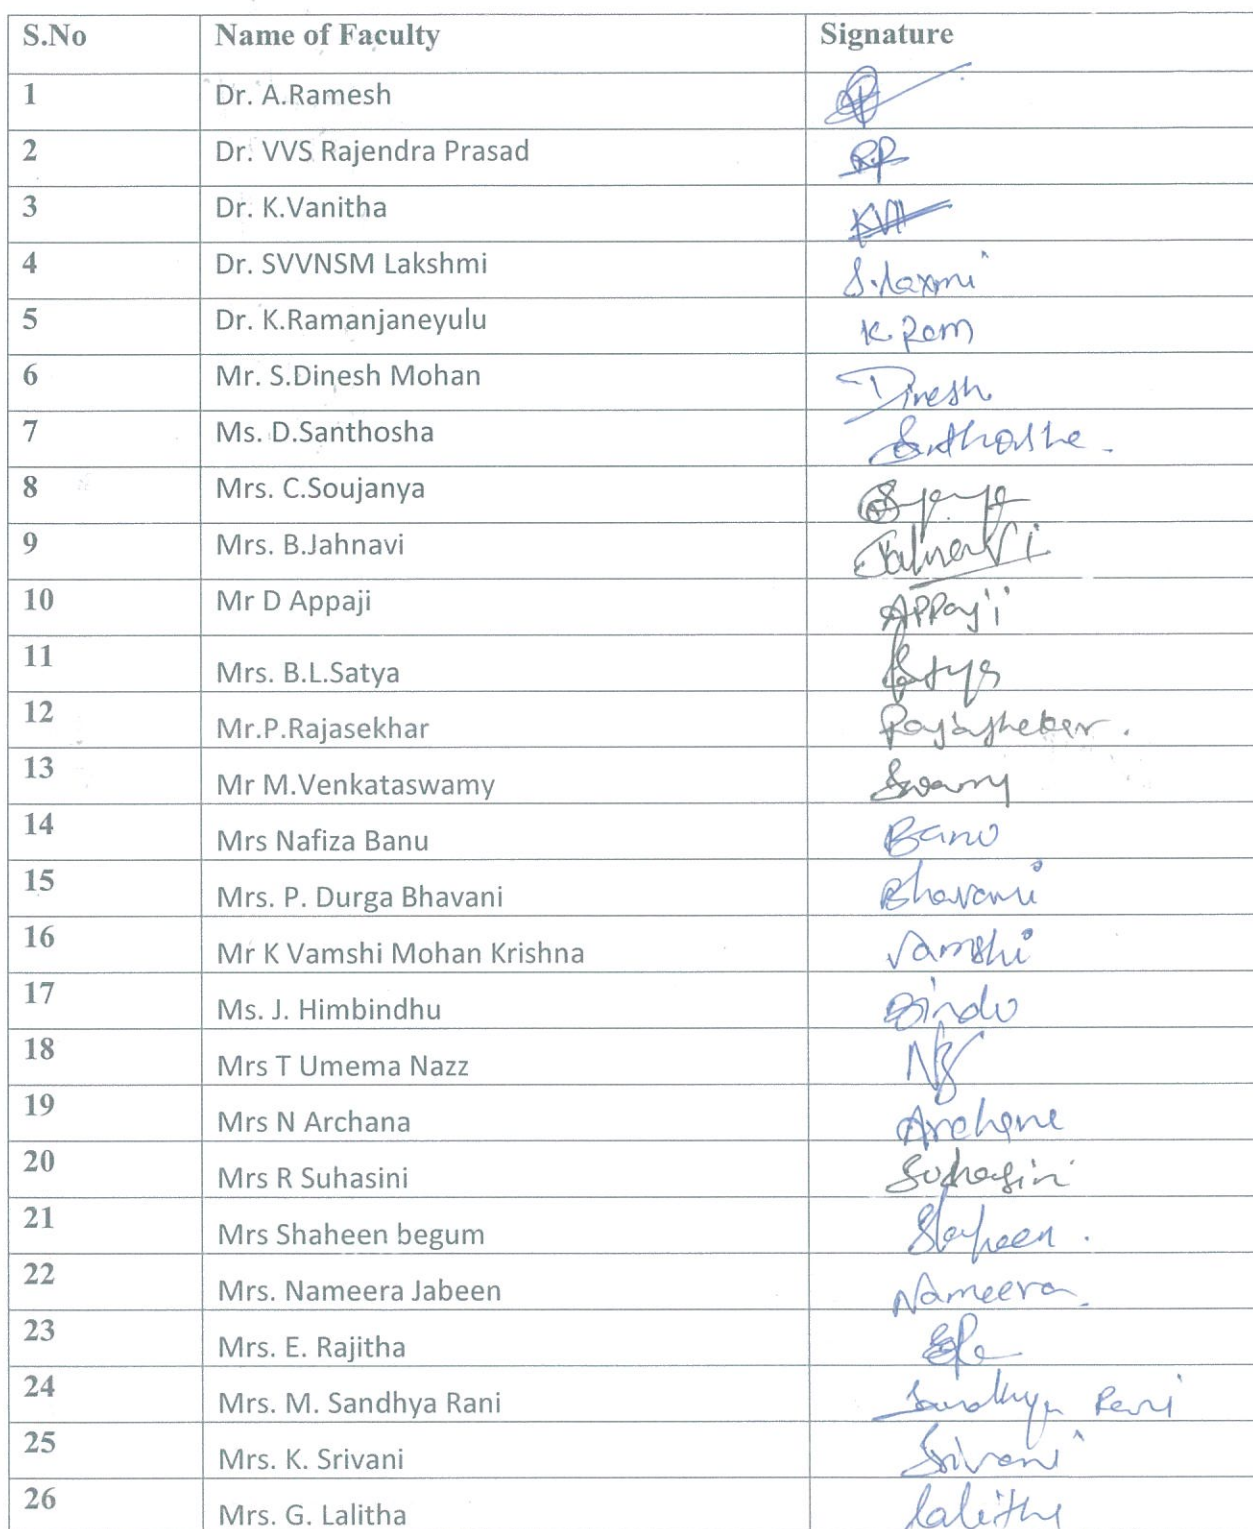 S.No Name of Faculty Signature
1 Dr. A.Ramesh
2 Dr. VVS Rajendra Prasad
3 Dr. K.Vanitha
4 Dr. SVVNSM Lakshmi S.laxmi
5 Dr. K.Ramanjaneyulu K. Ram
6 Mr. S.Dinesh Mohan Dinesh
7 Ms. D.Santhosha
8 Mrs. C.Soujanya
9 Mrs. B.Jahnavi Jahnavi
10 Mr D Appaji Appaji
11 Mrs. B.L.Satya
12 Mr.P.Rajasekhar
13 Mr M.Venkataswamy Swamy
14 Mrs Nafiza Banu Banu
15 Mrs. P. Durga Bhavani Bhavani
16 Mr K Vamshi Mohan Krishna Vamshi
17 Ms. J. Himbindhu Bindu
18 Mrs T Umema Nazz
19 Mrs N Archana
20 Mrs R Suhasini Suhasini
21 Mrs Shaheen begum Shaheen.
22 Mrs. Nameera Jabeen Nameera
23 Mrs. E. Rajitha
24 Mrs. M. Sandhya Rani Sandhya Rani
25 Mrs. K. Srivani Srivani
26 Mrs. G. Lalitha Lalitha